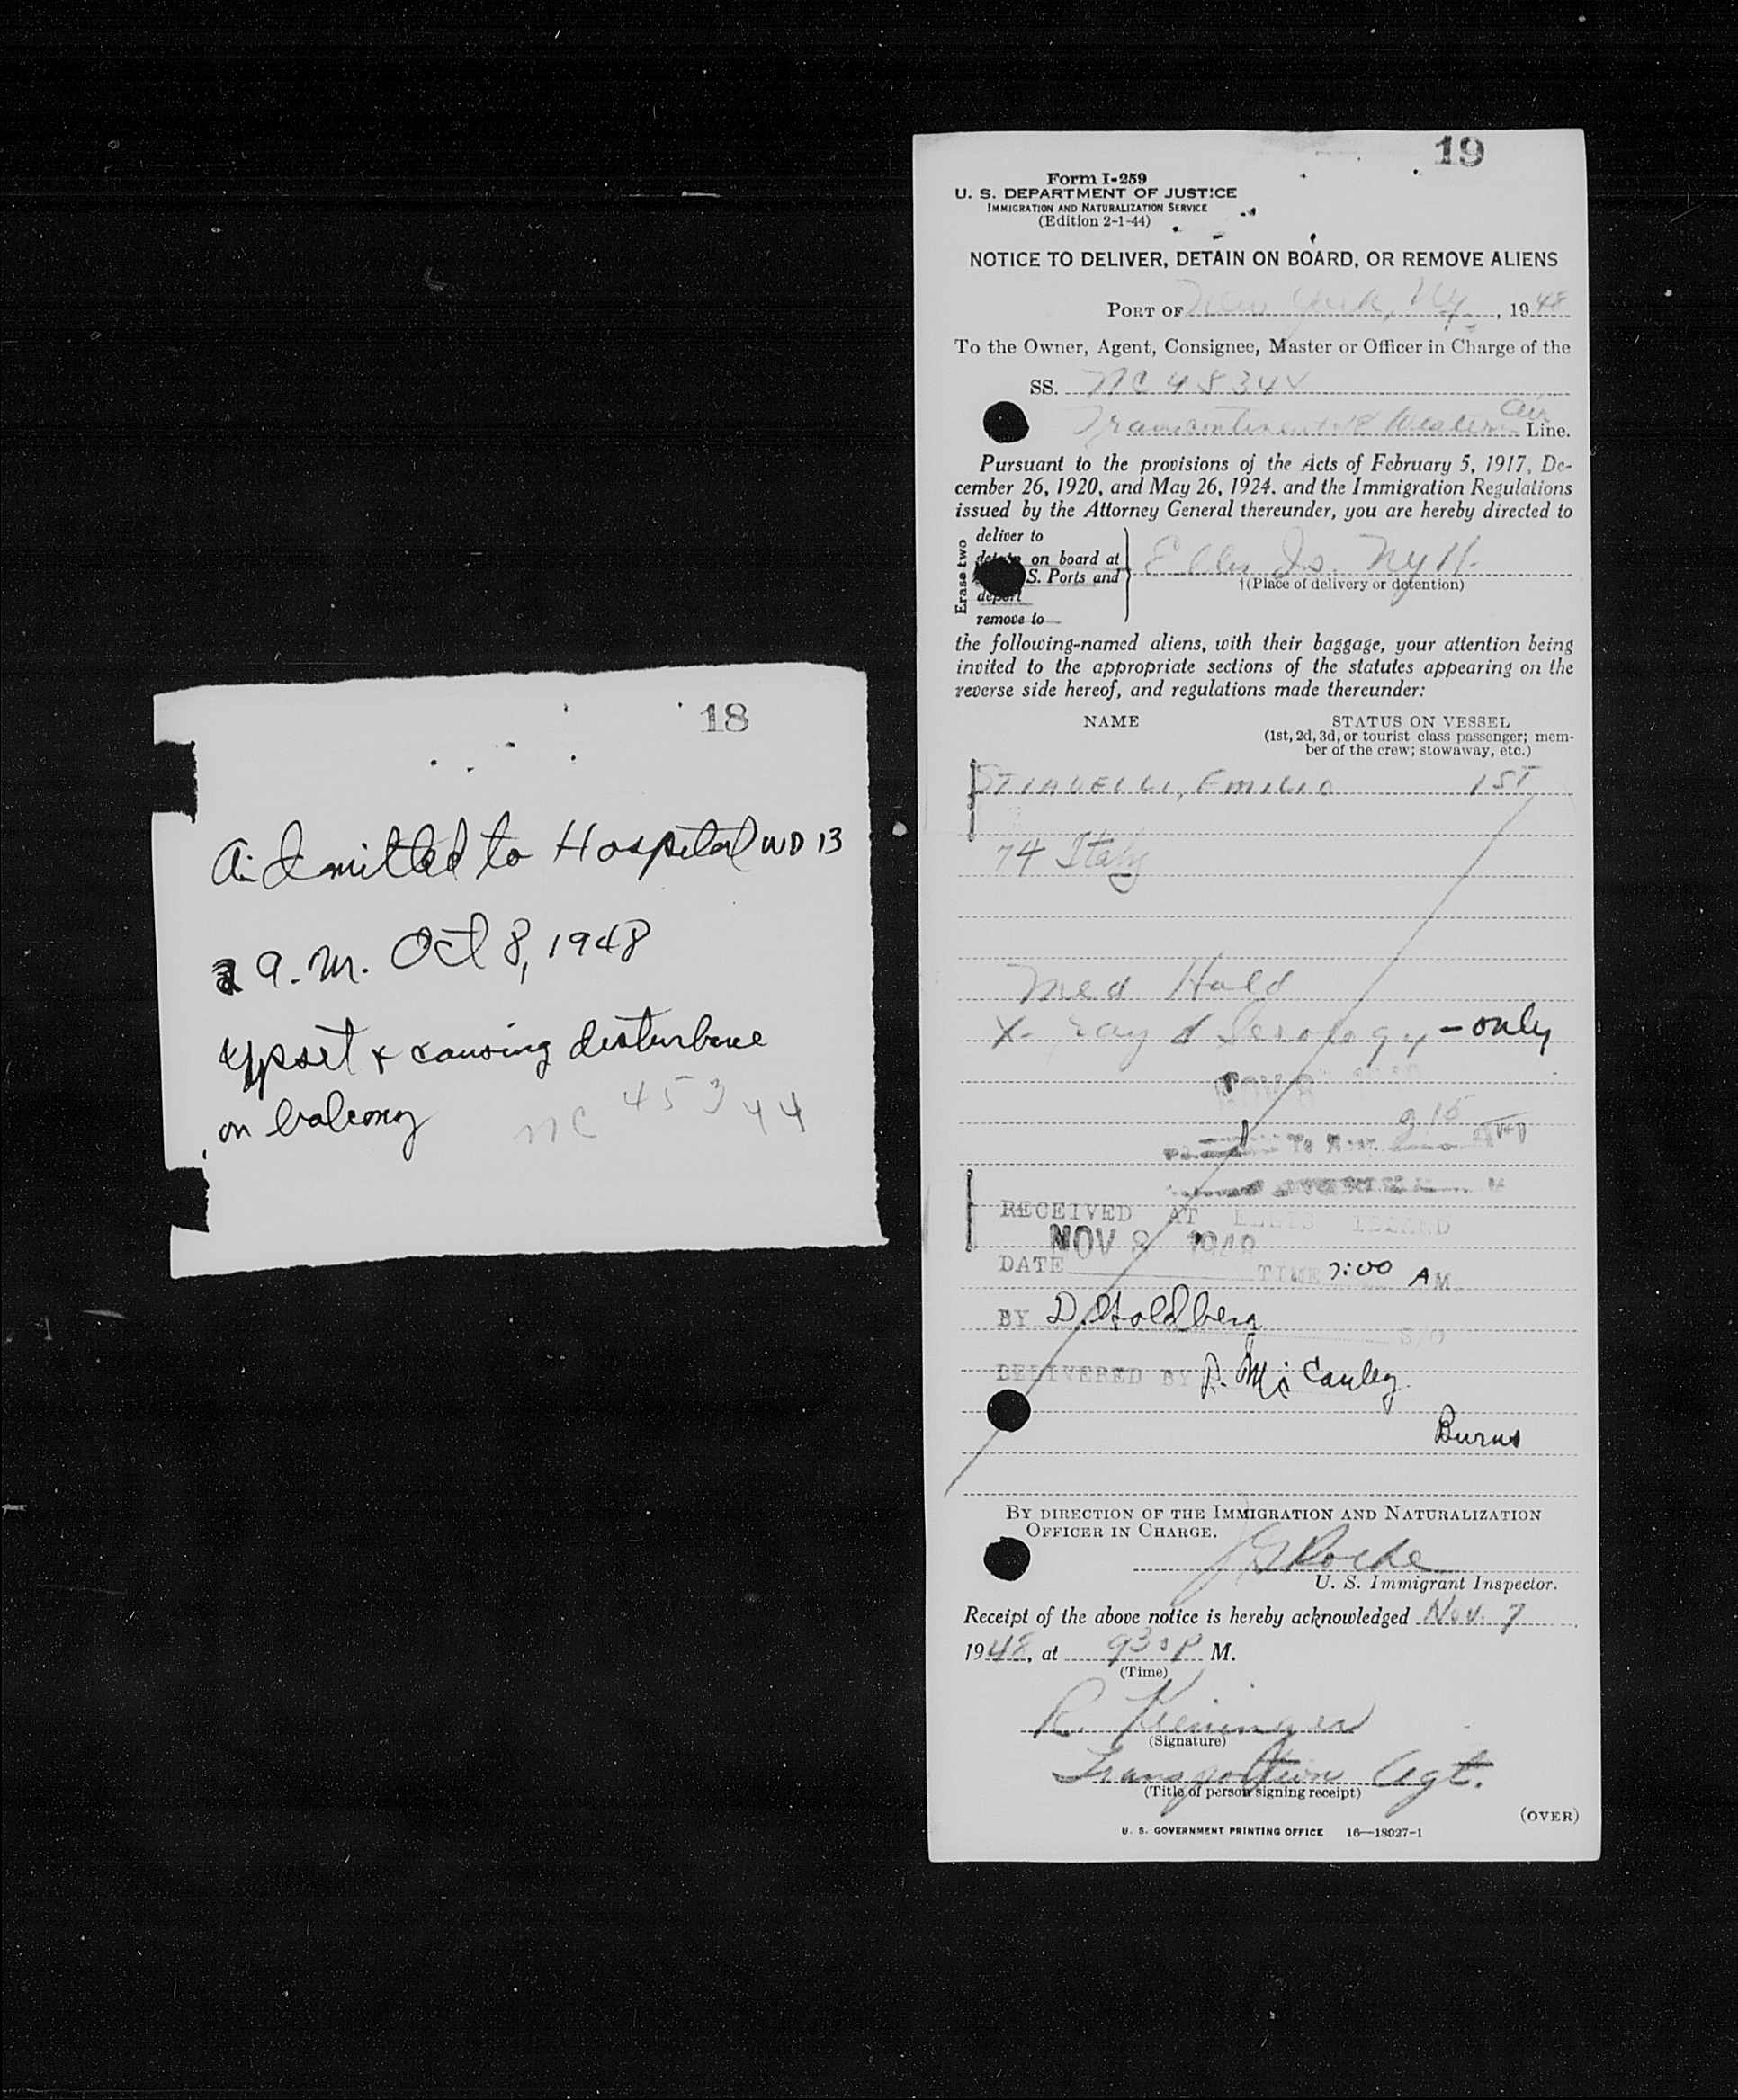 18
Admitted to Hospital WD 13
A.M. Oct 8, 1948
Upset & causing disturbance
on balcony
NC 45344
19
Form I-259
U. S. DEPARTMENT OF JUSTICE
IMMIGRATION AND NATURALIZATION SERVICE
(Edition 2-1-44)
NOTICE TO DELIVER, DETAIN ON BOARD, OR REMOVE ALIENS
PORT OF New York, NY, 1948
To the Owner, Agent, Consignee, Master or Officer in Charge of the
SS. NC 45344
Transcontinental & Western Air Line.
Pursuant to the provisions of the Acts of February 5, 1917, De-
cember 26, 1920, and May 26, 1924. and the Immigration Regulations
issued by the Attorney General thereunder, you are hereby directed to
Erase two
deliver to
detain on board at
S. Ports and
deport
remove to
Ellis Is. NYH.
†(Place of delivery or detention)
the following-named aliens, with their baggage, your attention being
invited to the appropriate sections of the statutes appearing on the
reverse side hereof, and regulations made thereunder:
NAME STATUS ON VESSEL
(1st, 2d, 3d, or tourist class passenger; mem-
ber of the crew; stowaway, etc.)
STIAVELLI, EMILIO 1ST
74 Italy
Med Hold
X-ray & Serology - only
NOV 8
915
RECEIVED AT ELLIS ISLAND
NOV 8 1948
DATE TIME 7:00 AM.
BY D. Goldberg
S/O
DELIVERED BY P. McCauley
Burns
BY DIRECTION OF THE IMMIGRATION AND NATURALIZATION
OFFICER IN CHARGE.
J G Roche
U. S. Immigrant Inspector.
Receipt of the above notice is hereby acknowledged Nov. 7
1948, at 930 P M.
(Time)
R. Kieninger
(Signature)
Transportion Agt.
(Title of person signing receipt)
(OVER)
U. S. GOVERNMENT PRINTING OFFICE 16—18927-1